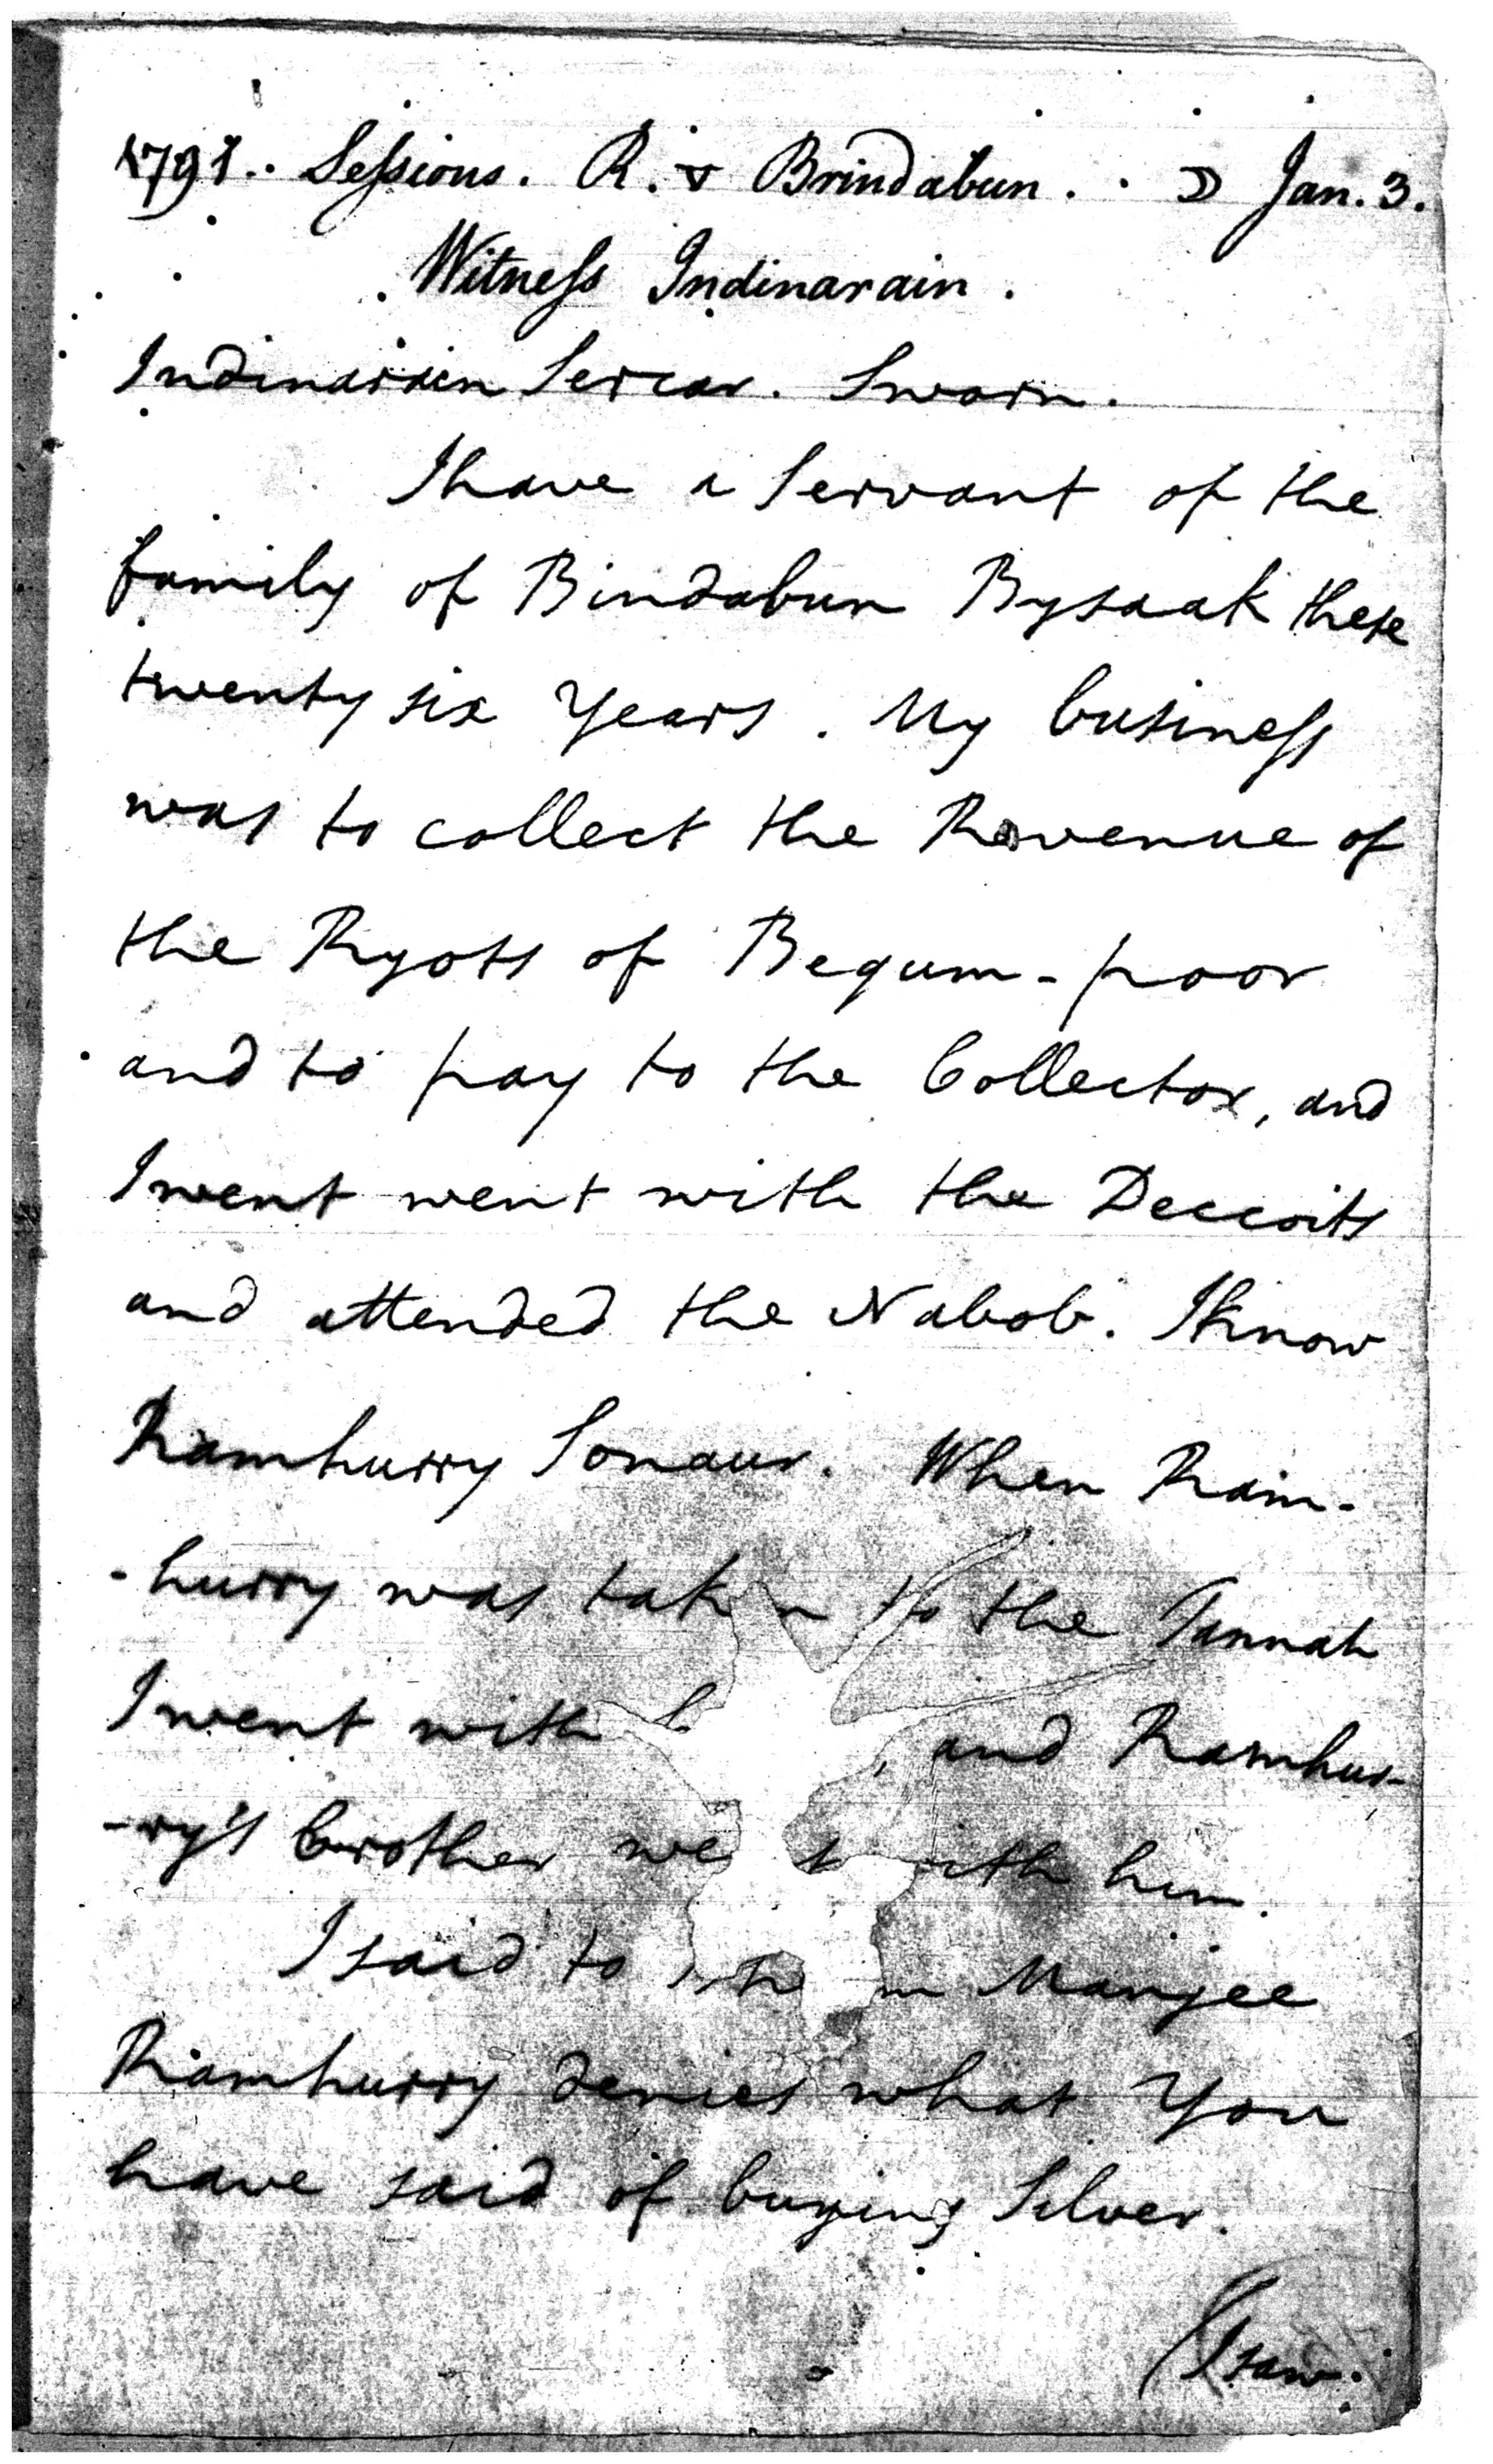 1791. Sessions. R. v Brindabun. . ☽ Jan. 3.
Witness Indinarain.
Indinarain Sercar. Sworn.
I have a Servant of the
family of Bindabun Bysaak these
twenty six Years. My business
was to collect the Revenue of
the Ryots of Begum-poor
and to pay to the Collector, and
I went went with the Deccoits
and attended the Nabob. I know
Ramhurry Sonaur. When Ram-
-hurry was taken to the Tannah
I went with , and Ramhur-
-ry's brother went with him.
I said to Manjee
Ramhurry denies what You
have said of buying Silver.
(I saw.